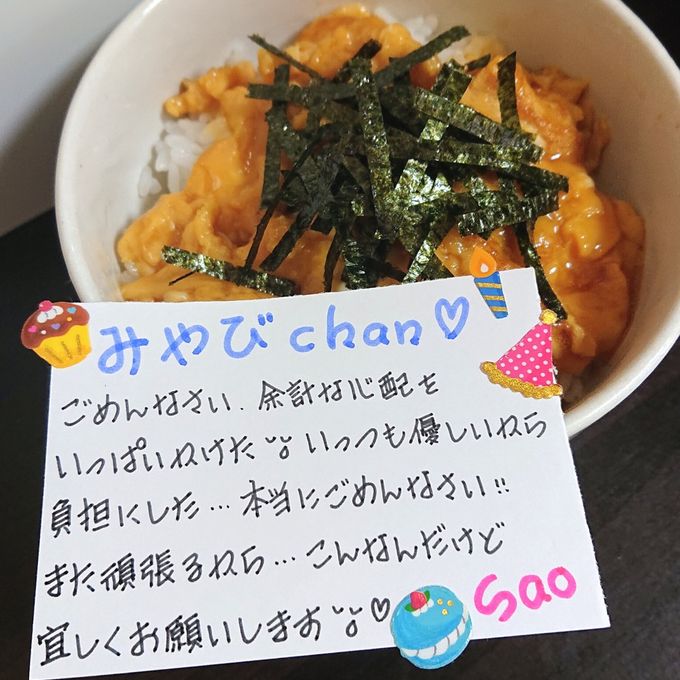 みやびchan♡
ごめんなさい、余計な心配を
いっぱいかけた いっつも優しいから
負担にした…本当にごめんなさい!!
また頑張るから…こんなんだけど
宜しくお願いします ♡
Sao